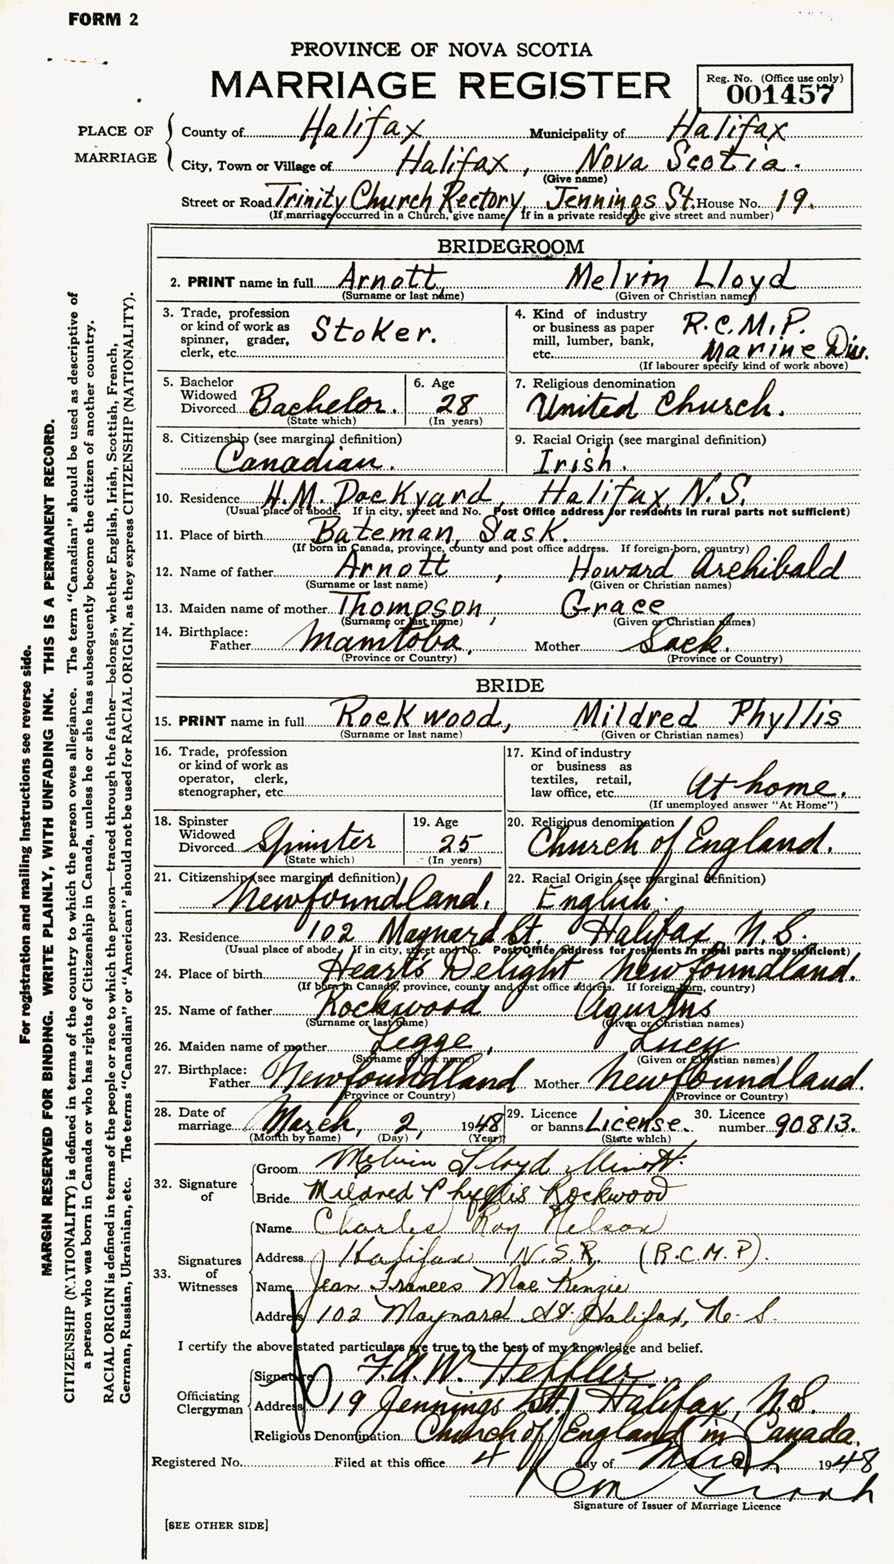 FORM 2
PROVINCE OF NOVA SCOTIA
MARRIAGE REGISTER
Reg. No. (Office use only)
001457
PLACE OF MARRIAGE
County of Halifax Municipality of Halifax
City, Town or Village of Halifax, Nova Scotia.
(Give name)
Street or Road Trinity Church Rectory, Jennings St. House No. 19.
(If marriage occurred in a Church, give name) If in a private residence give street and number)
BRIDEGROOM
2. PRINT name in full Arnott, Melvin Lloyd
(Surname or last name) (Given or Christian name)
3. Trade, profession or kind of work as spinner, grader, clerk, etc. Stoker.
4. Kind of industry or business as paper mill, lumber, bank, etc. R.C.M.P. Marine Div.
(If labourer specify kind of work above)
5. Bachelor Widowed Divorced Bachelor.
(State which)
6. Age 28
(In years)
7. Religious denomination United Church.
8. Citizenship (see marginal definition) Canadian.
9. Racial Origin (see marginal definition) Irish.
10. Residence H.M. Dockyard, Halifax, N.S.
(Usual place of abode. If in city, street and No. Post Office address for residents in rural parts not sufficient)
11. Place of birth Bateman, Sask.
(If born in Canada, province, county and post office address. If foreign-born, country)
12. Name of father Arnott, Howard Archibald
(Surname or last name) (Given or Christian names)
13. Maiden name of mother Thompson, Grace
(Surname or last name) (Given or Christian names)
14. Birthplace: Father Manitoba, Mother Sack.
(Province or Country) (Province or Country)
BRIDE
15. PRINT name in full Rockwood, Mildred Phyllis
(Surname or last name) (Given or Christian names)
16. Trade, profession or kind of work as operator, clerk, stenographer, etc.
17. Kind of industry or business as textiles, retail, law office, etc. At home.
(If unemployed answer "At Home")
18. Spinster Widowed Divorced Spinster
(State which)
19. Age 25
(In years)
20. Religious denomination Church of England.
21. Citizenship (see marginal definition) Newfoundland.
22. Racial Origin (see marginal definition) English.
23. Residence 102 Maynard St. Halifax, N.S.
(Usual place of abode, If in city, street and No. Post Office address for residents in rural parts not sufficient)
24. Place of birth Heart's Delight Newfoundland.
(If born in Canada, province, county and post office address. If foreign-born, country)
25. Name of father Rockwood Agustus
(Surname or last name) (Given or Christian names)
26. Maiden name of mother Legge, Lucy
(Surname or last name) (Given or Christian names)
27. Birthplace: Father Newfoundland Mother Newfoundland.
(Province or Country) (Province or Country)
28. Date of marriage March, 2, 1948
(Month by name) (Day) (Year)
29. Licence or banns License.
(State which)
30. Licence number 90813.
32. Signature of
Groom Melvin Lloyd Arnott.
Bride Mildred Phyllis Rockwood
33. Signatures of Witnesses
Name Charles Roy Nelson
Address Halifax N.S. (R.C.M.P).
Name Jean Frances MacKenzie
Address 102 Maynard St. Halifax, N.S.
I certify the above stated particulars are true to the best of my knowledge and belief.
Officiating Clergyman
Signature F.A.W. Heffler.
Address 19 Jennings St., Halifax, N.S.
Religious Denomination Church of England in Canada.
Registered No. Filed at this office 4 day of March 1948
Signature of Issuer of Marriage Licence
[SEE OTHER SIDE]
For registration and mailing instructions see reverse side.
MARGIN RESERVED FOR BINDING. WRITE PLAINLY, WITH UNFADING INK. THIS IS A PERMANENT RECORD.
CITIZENSHIP (NATIONALITY) is defined in terms of the country to which the person owes allegiance. The term "Canadian" should be used as descriptive of
a person who was born in Canada or who has rights of Citizenship in Canada, unless he or she has subsequently become the citizen of another country.
RACIAL ORIGIN is defined in terms of the people or race to which the person—traced through the father—belongs, whether English, Irish, Scottish, French,
German, Russian, Ukrainian, etc. The terms "Canadian" or "American" should not be used for RACIAL ORIGIN, as they express CITIZENSHIP (NATIONALITY).